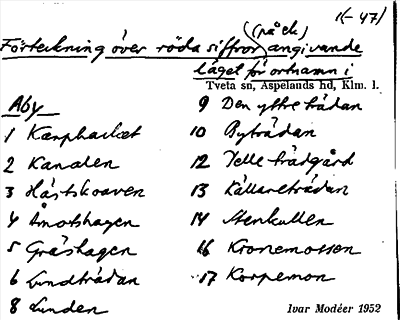 1(-47)
(på ek)
Förteckning över röda siffror angivande
läget för ortnamn i
Tveta sn, Aspelands hd, Klm. l.
Åby
1 Kärrhacket
2 Kanalen
3 Hästskoaven
4 Åmotshagen
5 Gräshagen
6 Lundträdan
8 Lunden
9 Den yttre trädan
10 Ryträdan
12 Pelle trädgård
13 Källareträdan
14 Stenkullen
16 Kronemossen
17 Korpemon
Ivar Modéer 1952